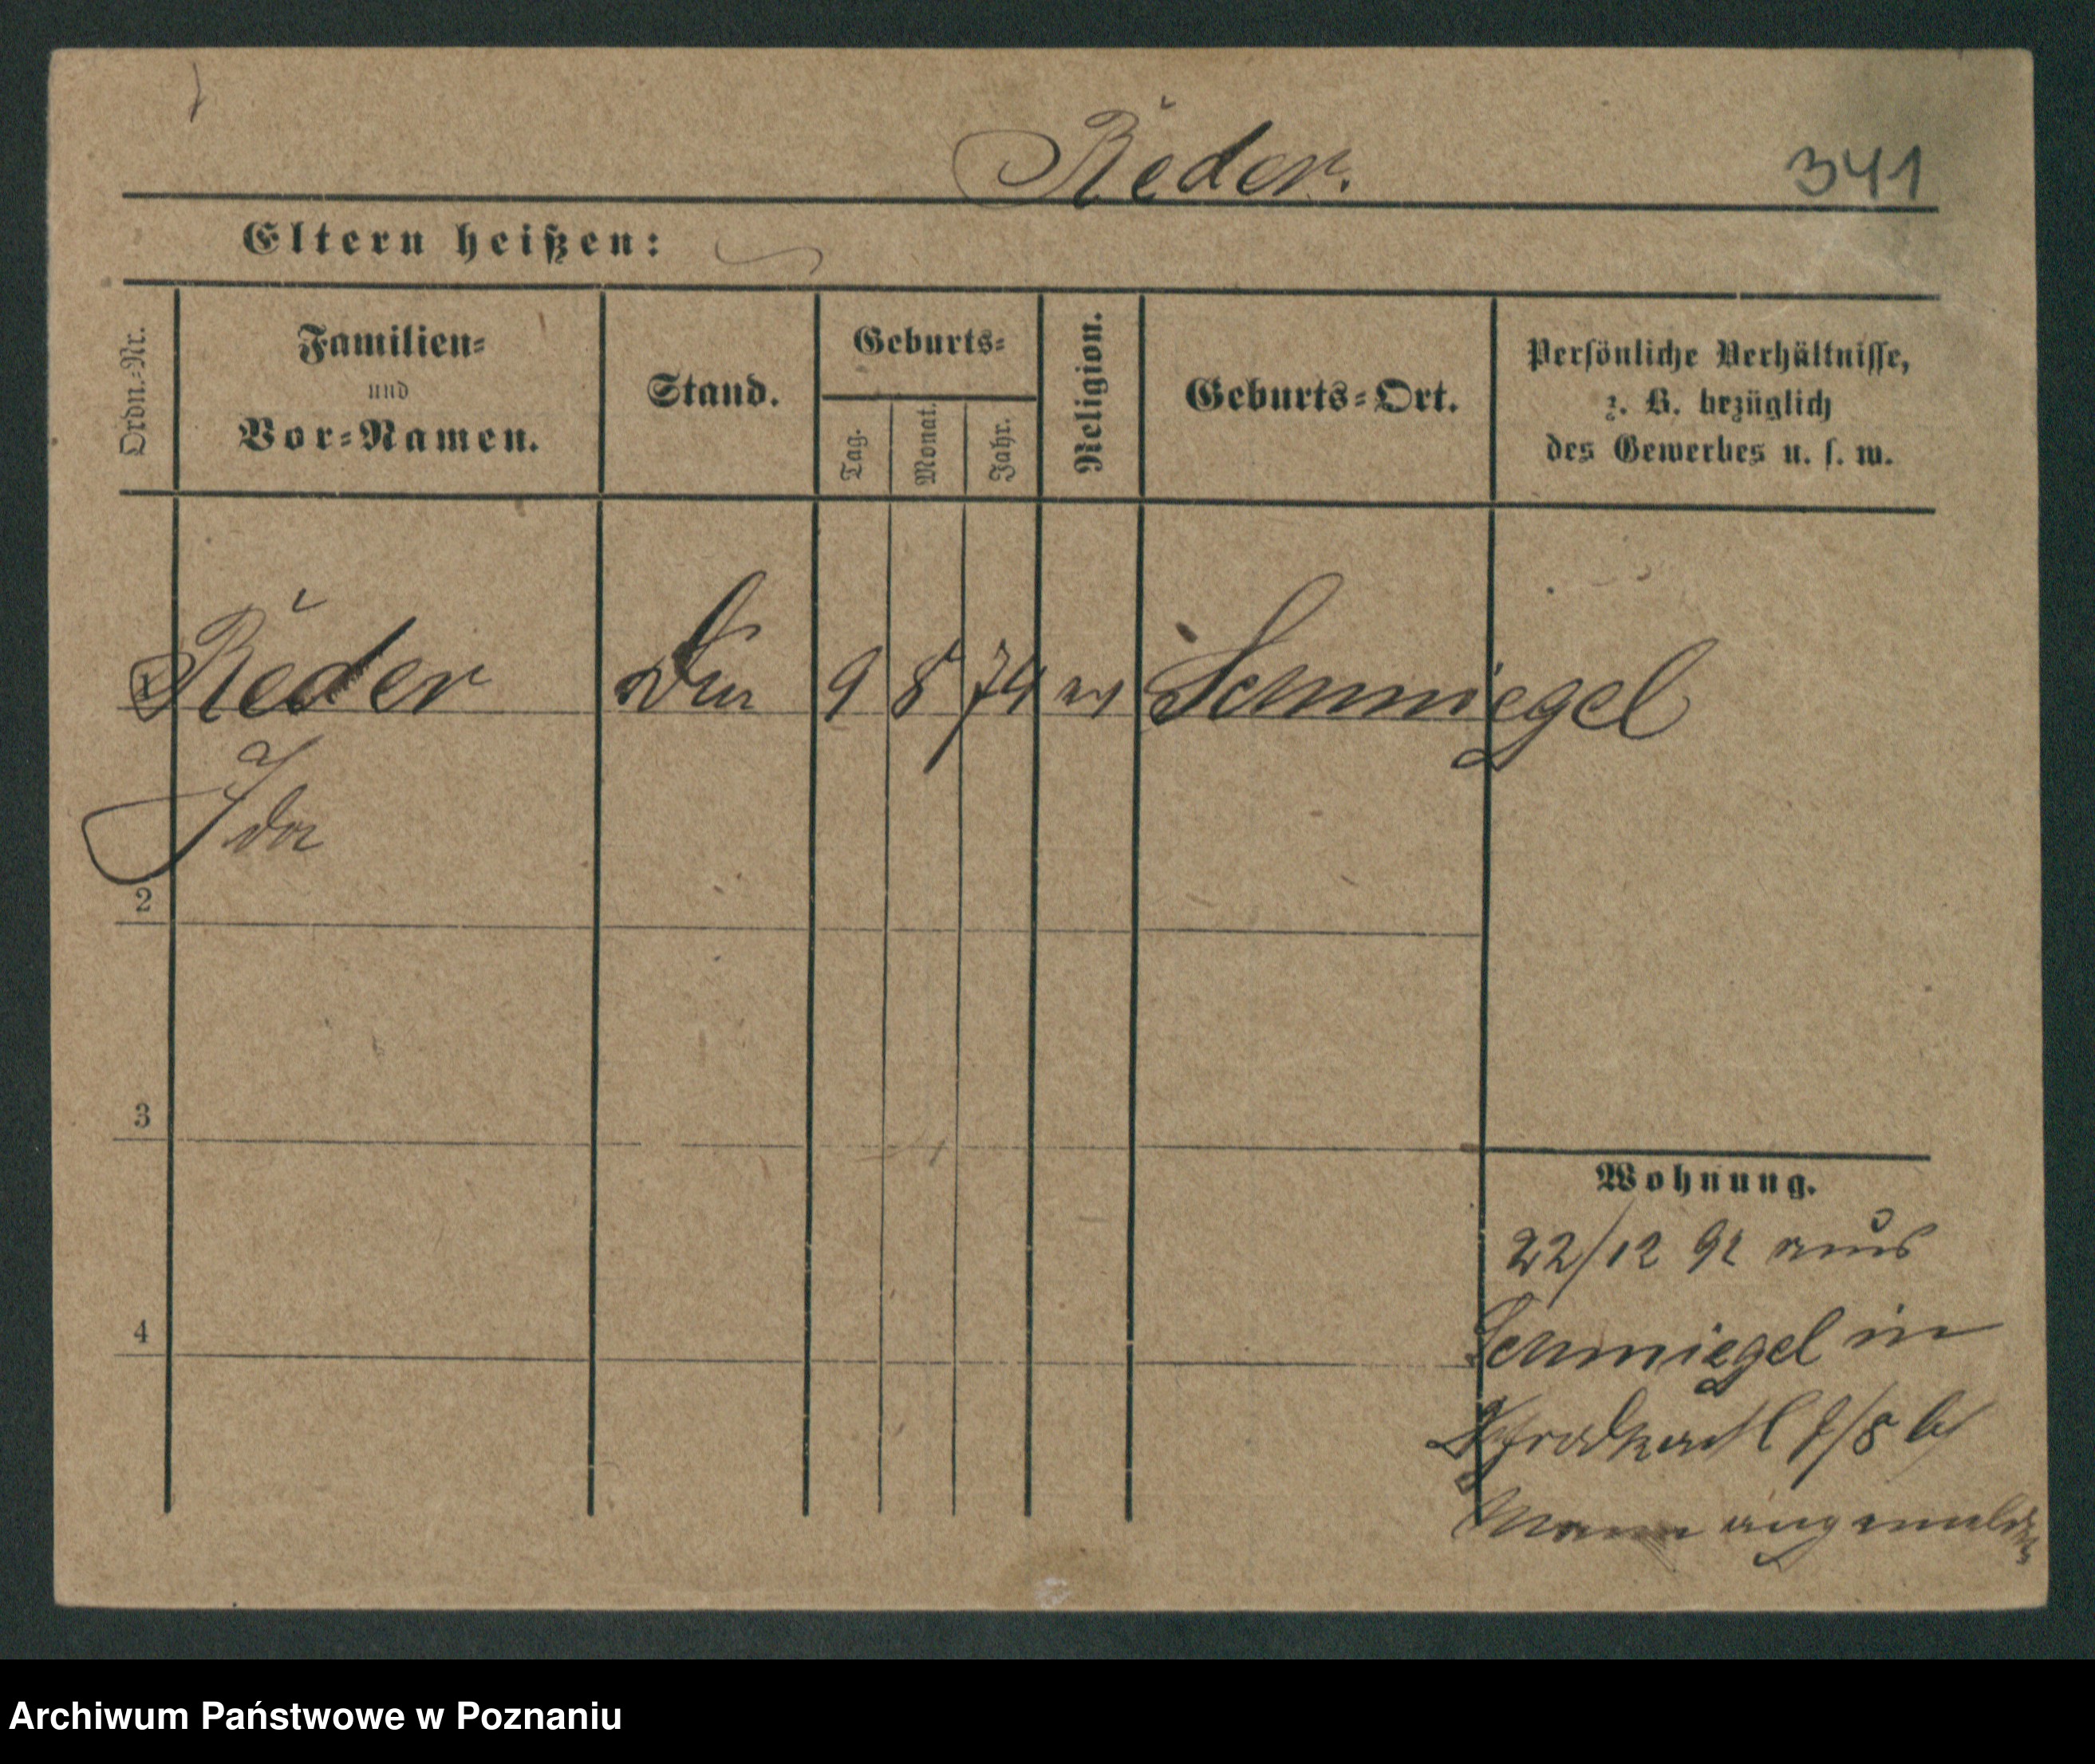 Reder.
341
Eltern heißen:
Ordn.-Nr.
Familien-
und
Vor-Namen.
Stand.
Geburts-
Tag.
Monat.
Jahr.
Religion.
Geburts-Ort.
Persönliche Verhältnisse,
z. B. bezüglich
des Gewerbes u. s. w.
1 Reder 9 8 74 Schmiegel
Ida
2
3
4
Wohnung.
22/12 91 aus
Schmiegel in
Mann angemeldet
Archiwum Państwowe w Poznaniu